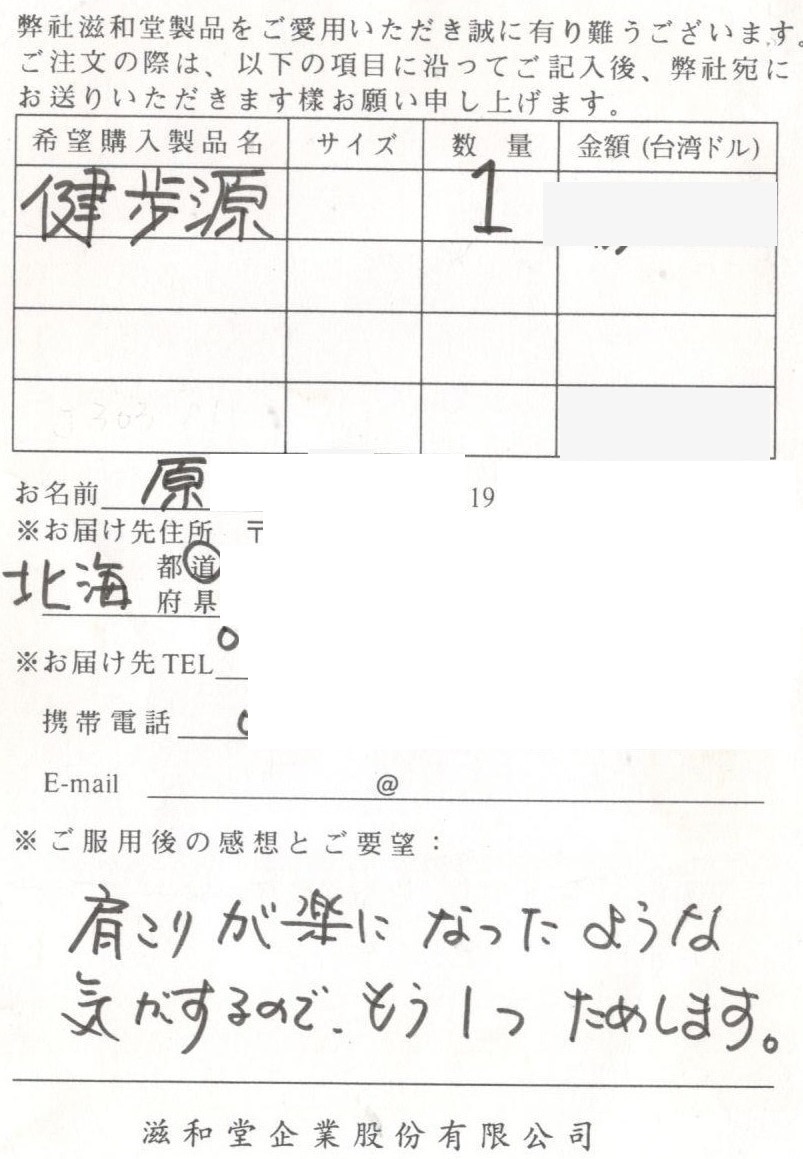 弊社滋和堂製品をご愛用いただき誠に有り難うございます。
ご注文の際は、以下の項目に沿ってご記入後、弊社宛に
お送りいただきます様お願い申し上げます。
希望購入製品名 サイズ 数量 金額 (台湾ドル)
健歩源 1
お名前 原 19
※お届け先住所 〒
北海 都道
府県
※お届け先 TEL 0
携帯電話
E-mail @
※ご服用後の感想とご要望：
肩こりが楽になったような
気がするので、もう1つためします。
滋和堂企業股份有限公司